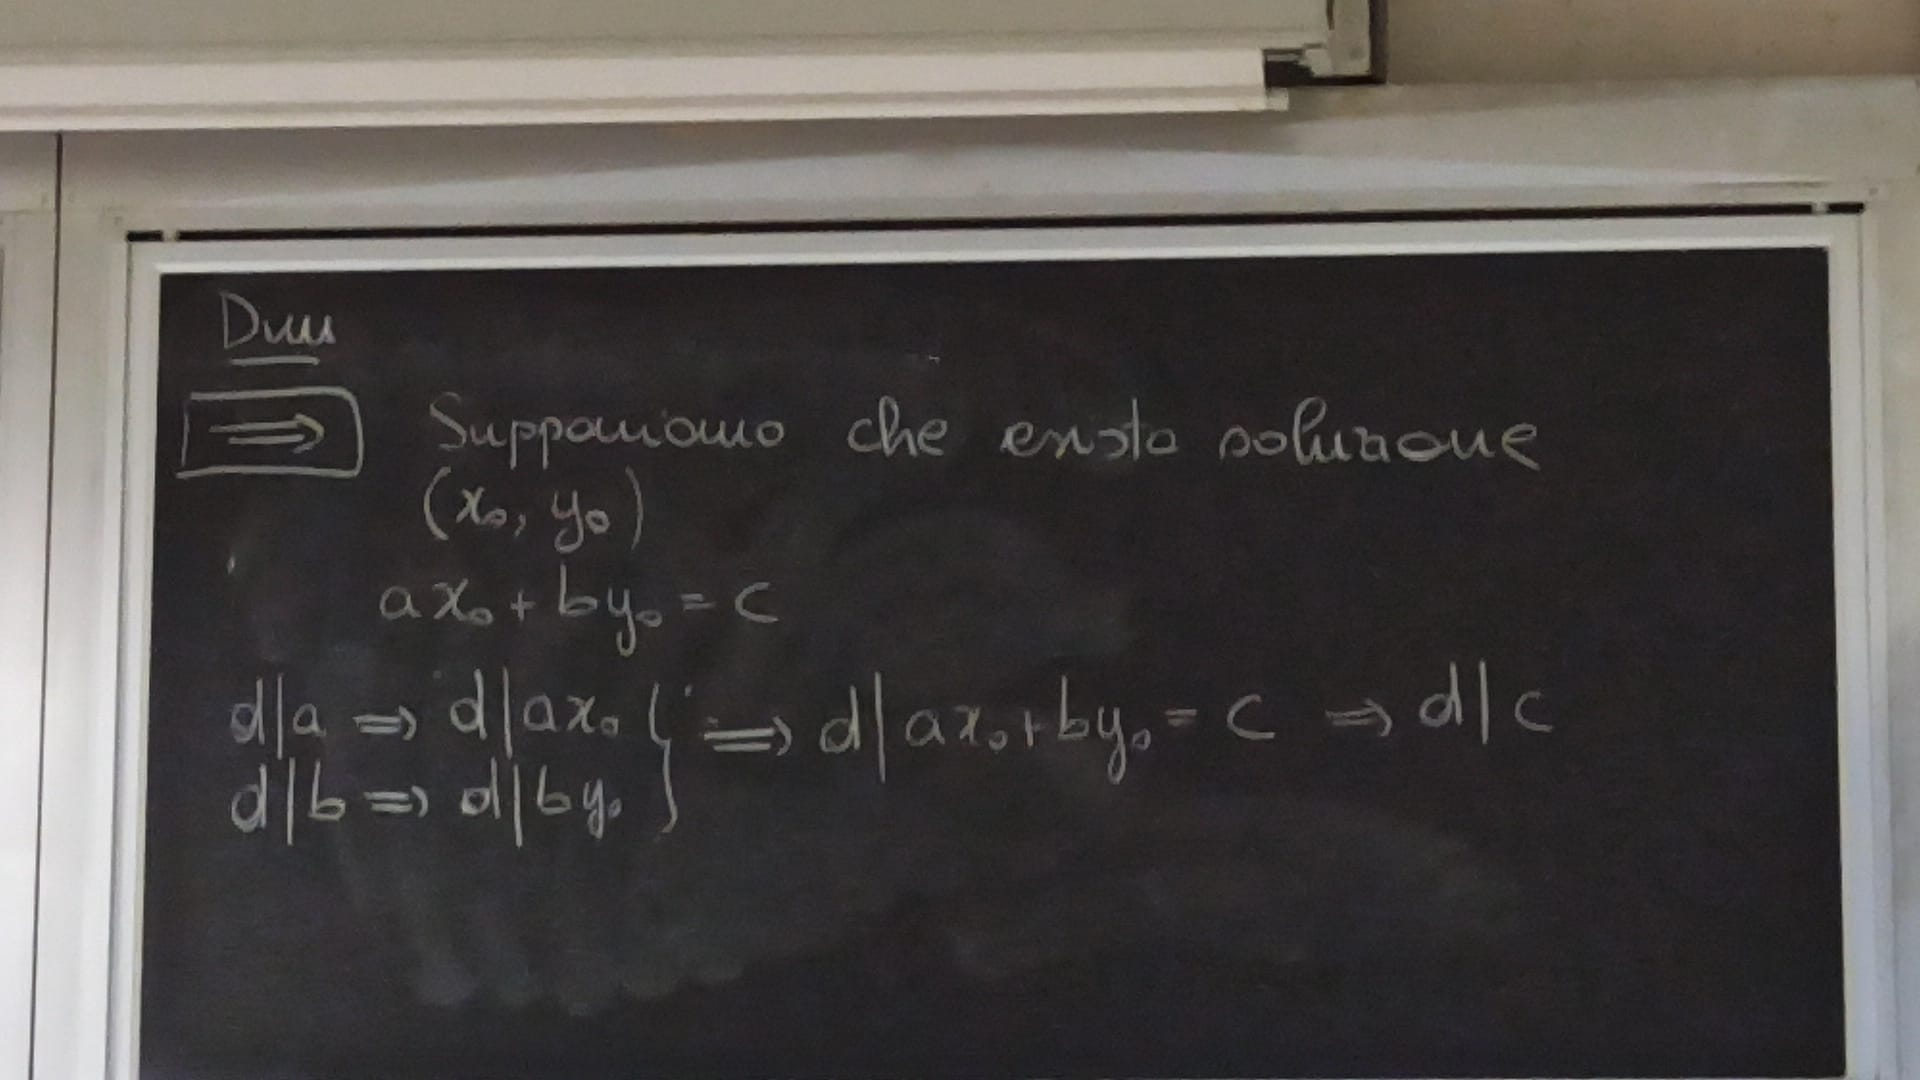 Dim
⇒ Supponiamo che esista soluzione
(x₀, y₀)
ax₀ + by₀ = c
d|a ⇒ d|ax₀ } ⇒ d|ax₀+by₀ = c ⇒ d|c
d|b ⇒ d|by₀